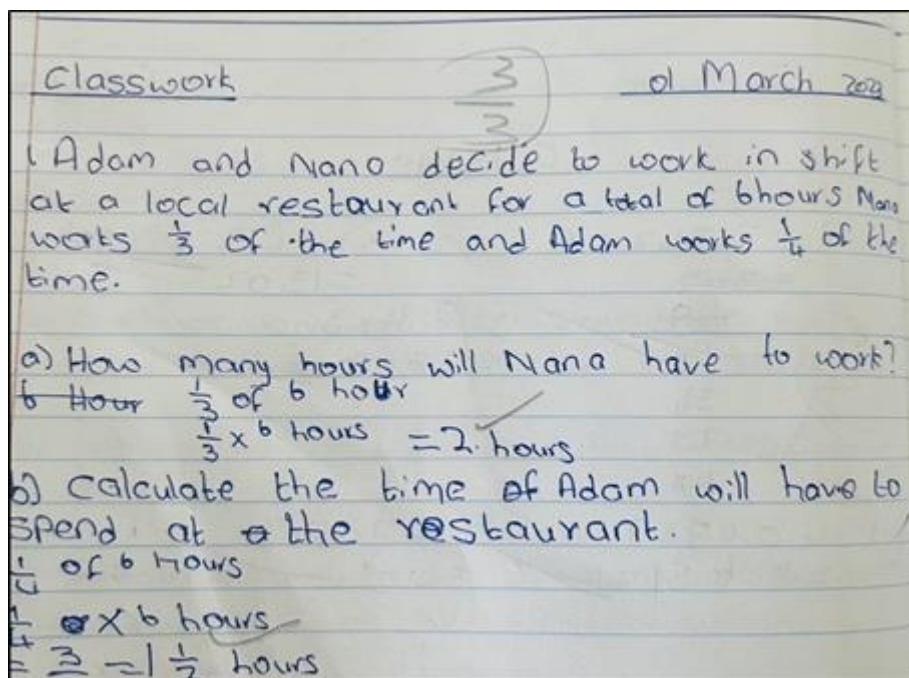 3
3
Classwork 01 March 2021
1 Adam and Nano decide to work in shift
at a local restaurant for a total of 6hours Nano
works 1/3 of the time and Adam works 1/4 of the
time.
a) How many hours will Nana have to work?
6 Hour 1/3 of 6 hour
1/3 x 6 hours = 2 hours
b) Calculate the time of Adam will have to
spend at the restaurant.
1/4 of 6 hours
1/4 x 6 hours
= 3/2 = 1 1/2 hours